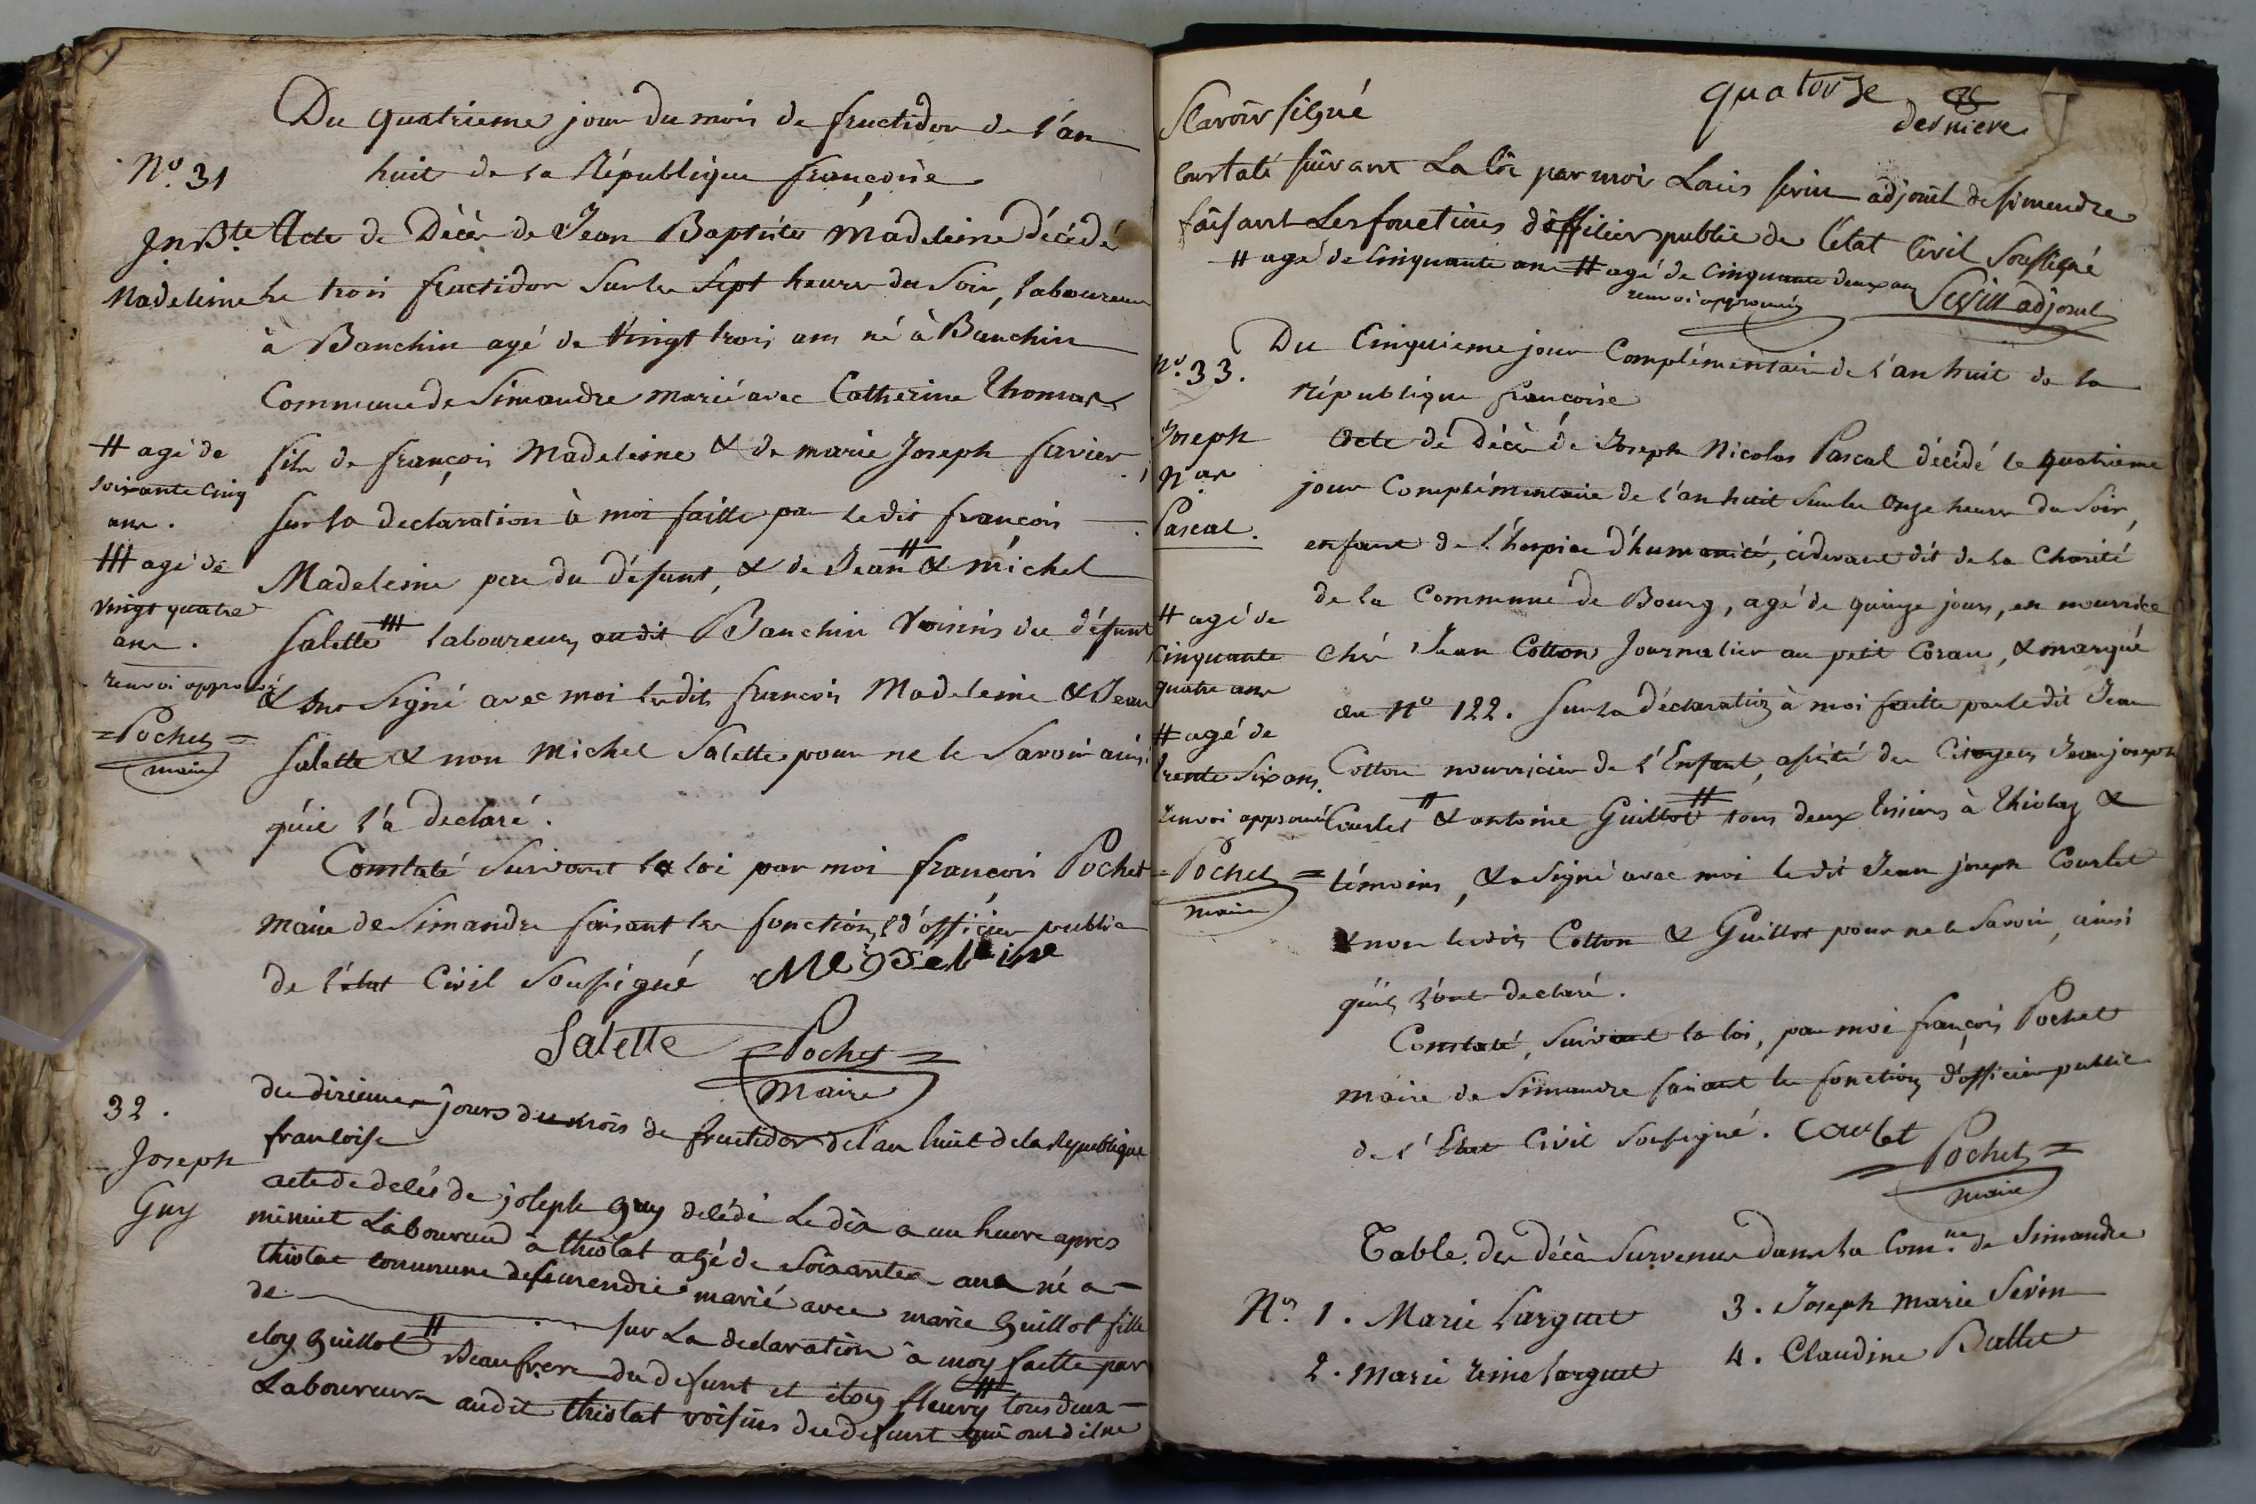 Du quatrieme jour du mois de fructidor de l'an
huit de la République françoise
N.º 31
Jn. B.te
Madeleine
Acte de Décès de Jean Baptiste Madeleine décédé
le trois fructidor sur les sept heures du Soir, laboureur
à Banchin agé de vingt trois ans né à Banchin
Commune de Simandre marié avec Catherine Thomas
fils de françois Madeleine & de marie Joseph favier,
sur la declaration à moi faitte par le dit françois
Madeleine pere du défunt, & de Jean # & michel
Salette ### laboureurs audit Banchin Voisins du défunt
& ont Signé avec moi lesdits françois Madeleine & Jean
Salette & non Michel Salette pour ne le Savoir ainsi
qu'il l'a declaré.
# agé de
soixante cinq
ans.
### agé de
vingt quatre
ans.
renvoi approuvé
=Pochet=
maire
Constaté Suivant la loi par moi françois Pochet
maire de Simandre faisant les fonctions d'officier public
de l'état Civil Sousigné Madeleine
Salette =Pochet=
maire
32.
Joseph
Guy
du dixieme jours du mois de fructidor de l'an huit de la Republique
francoise
acte de decés de joseph guy decédé le dix a un heure apres
minuit Laboureur à thiolat agé de soixante ans né a
thiolat commune de simendre marié avec marie guillot fille
de sur La declaration à moy faitte par
eloy guillot # Beaufrere du defunt et eloy fleury # tous deux
Laboureurs audit thiolat voisins du defunt qui ont dit ne
quatorze
derniere
Scavoir signé
Constaté suivant La loi par moi Louis sevin adjoint de simendre
faisant Les fonctions d'officier public de l'etat Civil soussigné
# agé de cinquante ans # agé de cinquante deux ans
renvoi approuvés Sevin adjoint
N.º 33.
Joseph
N.as
Pascal.
Du Cinquieme jour Complémentaire de l'an huit de la
république françoise
Acte de décès de Joseph Nicolas Pascal décédé le quatrieme
jour Complémentaire de l'an huit sur les onze heures du Soir,
enfant de l'hospice d'humanité, cidevant dit de la Charité
de la Commune de Bourg, agé de quinze jours, en nourrice
chés Jean Cotton Journalier au petit Coran, & marqué
au Nº 122. Sur la déclaration à moi faitte par le dit Jean
Cotton nourricier de l'Enfant, assisté des Citoyens Jean joseph
Courlet # & antoine Guillot # tous deux tissiers à Thiolaz &
témoins, & a Signé avec moi le dit Jean joseph Courlet
& non lesdits Cotton & Guillot pour ne le Savoir, ainsi
qu'ils l'ont declaré.
# agé de
cinquante
quatre ans
# agé de
trente six ans.
renvoi approuvé
=Pochet=
maire
Constaté, suivant la loi, par moi françois Pochet
maire de Simandre faisant les fonctions d'officier public
de l'Etat Civil sousigné. Courlet =Pochet=
maire
Table des décès survenus dans la Com.ne de Simandre
N.os 1. Marie Larguet
3. Joseph marie Sevin
2. Marie reine larguet
4. Claudine Ballet